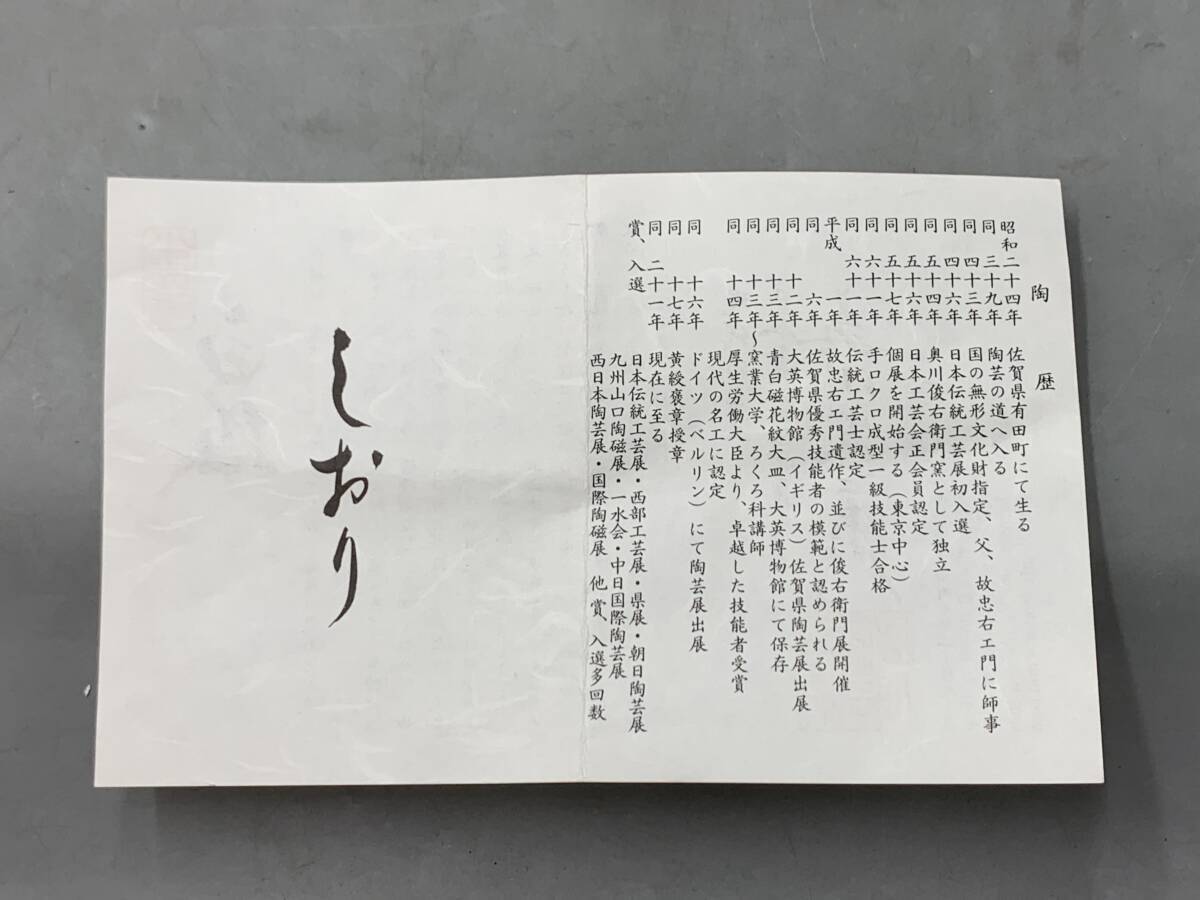 陶歴
昭和二十四年 佐賀県有田町にて生る
同 三十九年 陶芸の道へ入る
同 四十三年 国の無形文化財指定、父、故忠右エ門に師事
同 四十六年 日本伝統工芸展初入選
同 五十四年 奥川俊右衛門窯として独立
同 五十六年 日本工芸会正会員認定
同 五十七年 個展を開始する(東京中心)
同 六十一年 手ロクロ成型一級技能士合格
同 六十一年 伝統工芸士認定
平成 一年 故忠右エ門遺作、並びに俊右衛門展開催
同 六年 佐賀県優秀技能者の模範と認められる
同 十二年 大英博物館(イギリス)佐賀県陶芸展出展
同 十三年 青白磁花紋大皿、大英博物館にて保存
同 十三年~窯業大学、ろくろ科講師
同 十四年 厚生労働大臣より、卓越した技能者受賞
現代の名工に認定
同 十六年 ドイツ(ベルリン)にて陶芸展出展
同 十七年 黄綬褒章授章
同 二十一年 現在に至る
賞、入選 日本伝統工芸展・西部工芸展・県展・朝日陶芸展
九州山口陶磁展・一水会・中日国際陶芸展
西日本陶芸展・国際陶磁展 他賞、入選多回数
しおり